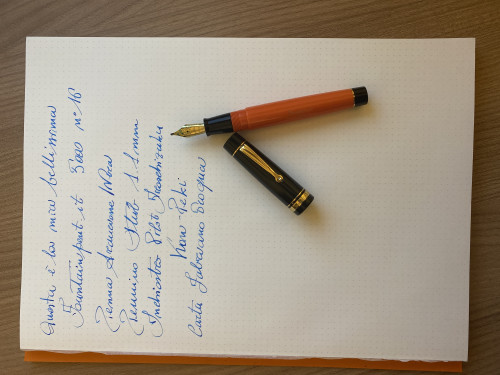 Questa è la mia bellissima
Fountainpen.it 3000 n° 16
Penna Arancione
Pennino Stub 1.1 mm
Inchiostro Pilot Iroshizuku
Kon-Peki
Carta Fabriano Ecoqua